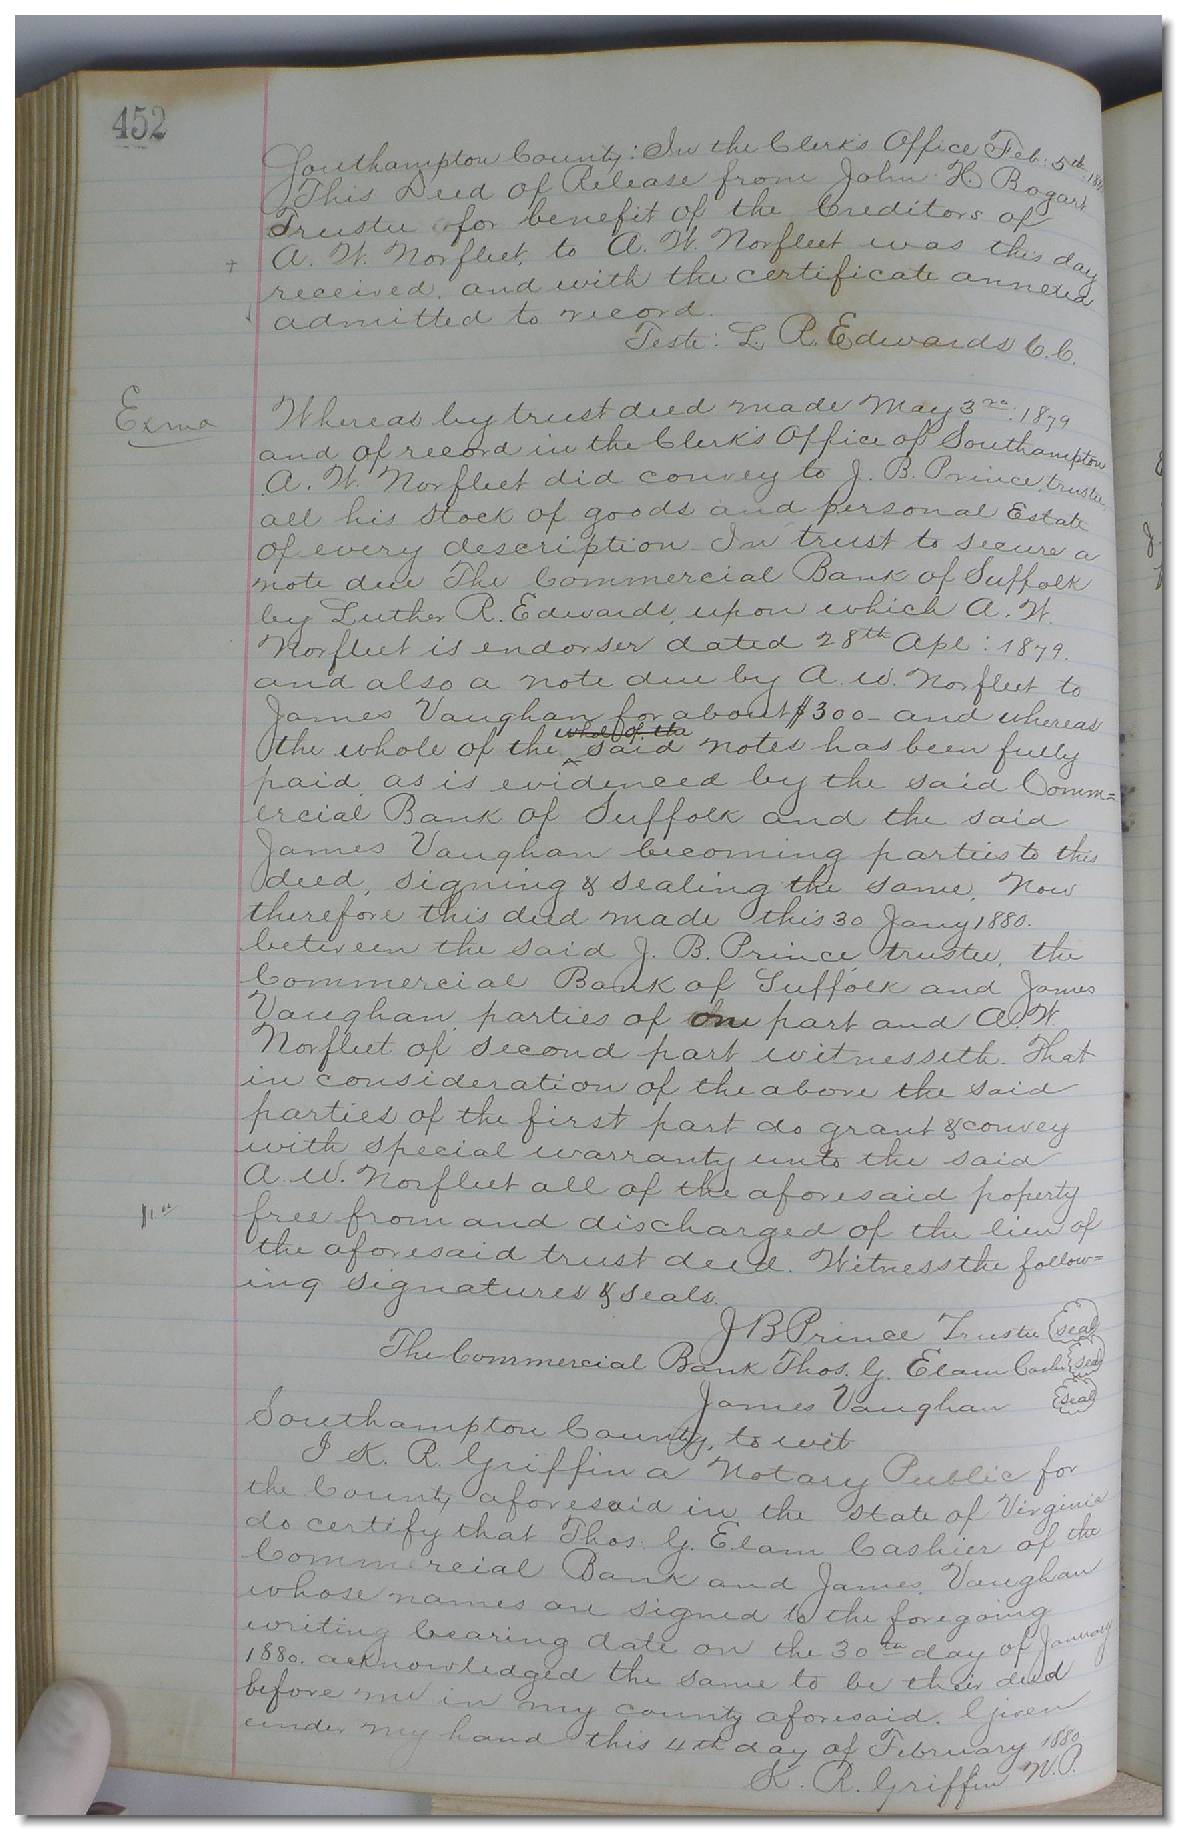 452
Southampton County: In the Clerk's Office Feb. 5th
This Deed of Release from John H. Bogart
Trustee for benefit of the Creditors of
A. W. Norfleet, to A. W. Norfleet was this day
received, and with the certificate annexed
admitted to record.
Teste: L. R. Edwards C.C.
Exmd
Whereas by trust deed made May 3rd: 1879
and of record in the Clerk's Office of Southampton
A. W. Norfleet did convey to J. B. Prince, trustee,
all his stock of goods and personal Estate
of every description In trust to secure a
note due The Commercial Bank of Suffolk
by Luther R. Edwards, upon which A. W.
Norfleet is endorser dated 28th Apl: 1879.
and also a note due by A. W. Norfleet to
James Vaughan for about $300 - and whereas
whole of the
the whole of the ^ said notes has been fully
paid as is evidenced by the said Comm=
ercial Bank of Suffolk and the said
James Vaughan becoming parties to this
deed, signing & sealing the same, Now
therefore this deed made this 30 Jany 1880.
between the said J. B. Prince, trustee, the
Commercial Bank of Suffolk and James
Vaughan, parties of one part and A. W.
Norfleet of second part witnesseth. That
in consideration of the above the said
parties of the first part do grant & convey
with special warranty unto the said
A. W. Norfleet all of the aforesaid poperty
free from and discharged of the lien of
the aforesaid trust deed. Witness the follow=
ing signatures & seals.
J B Prince Trustee (seal)
The Commercial Bank Thos. G. Elam Cashr (seal)
James Vaughan (seal)
Southampton County, to wit
I K. R. Griffin a Notary Public for
the County aforesaid in the State of Virginia
do certify that Thos. G. Elam Cashier of the
Commercial Bank and James Vaughan
whose names are signed to the foregoing
writing bearing date on the 30th day of January
1880. acknowledged the same to be their deed
before me in my county aforesaid. Given
under my hand this 4th day of February 1880
K. R. Griffin N.P.